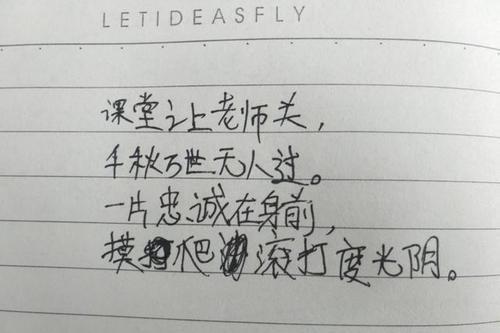 LETIDEASFLY
课堂之上老师关,
千秋万世无人过。
一片忠诚在身前,
摸爬滚打度光阴。